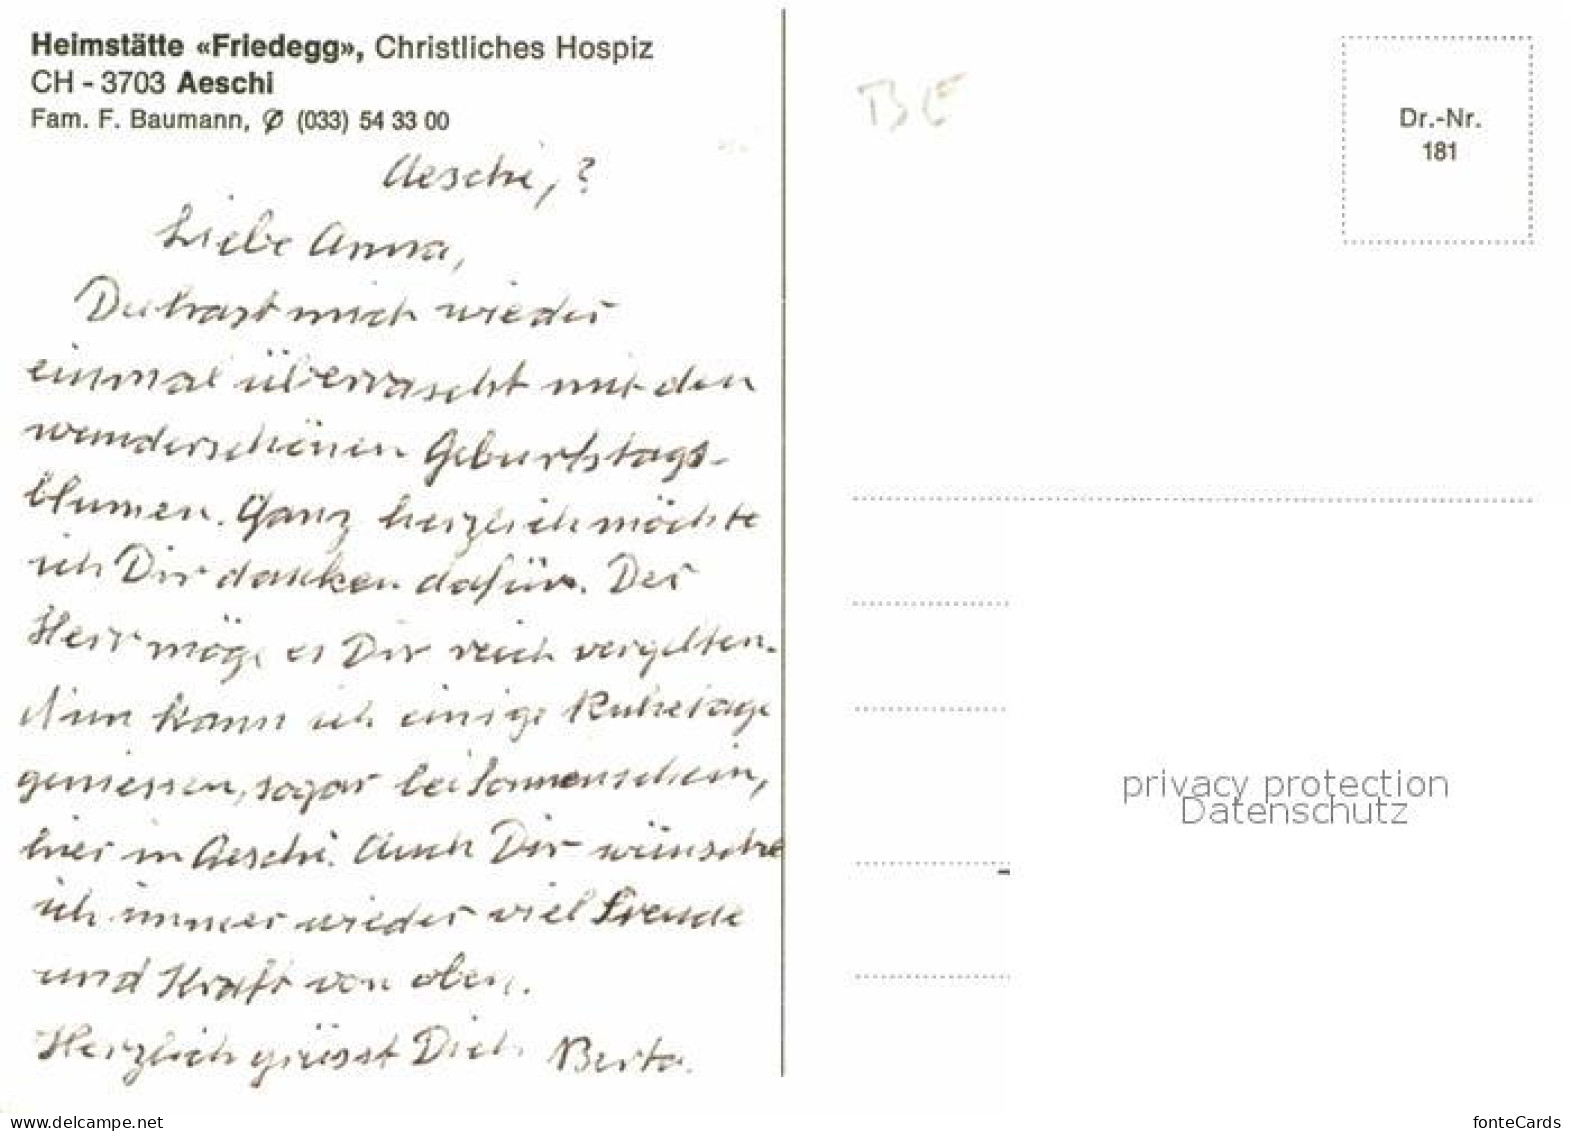 Heimstätte «Friedegg», Christliches Hospiz
CH - 3703 Aeschi
Fam. F. Baumann, ✆ (033) 54 33 00
Aeschi, ?
Liebe Anna,
Du hast mich wieder
einmal überrascht mit den
wunderschönen Geburtstags-
blumen. Ganz herzlich möchte
ich Dir danken dafür. Der
Herr möge es Dir reich vergelten.
Nun kann ich einige Ruhetage
geniessen, sogar bei Sonnenschein,
hier in Aeschi. Auch Dir wünsche
ich immer wieder viel Freude
und Kraft von oben.
Herzlich grüsst Dich Berta.
BE
Dr.-Nr.
181
privacy protection
Datenschutz
www.delcampe.net
fonteCards